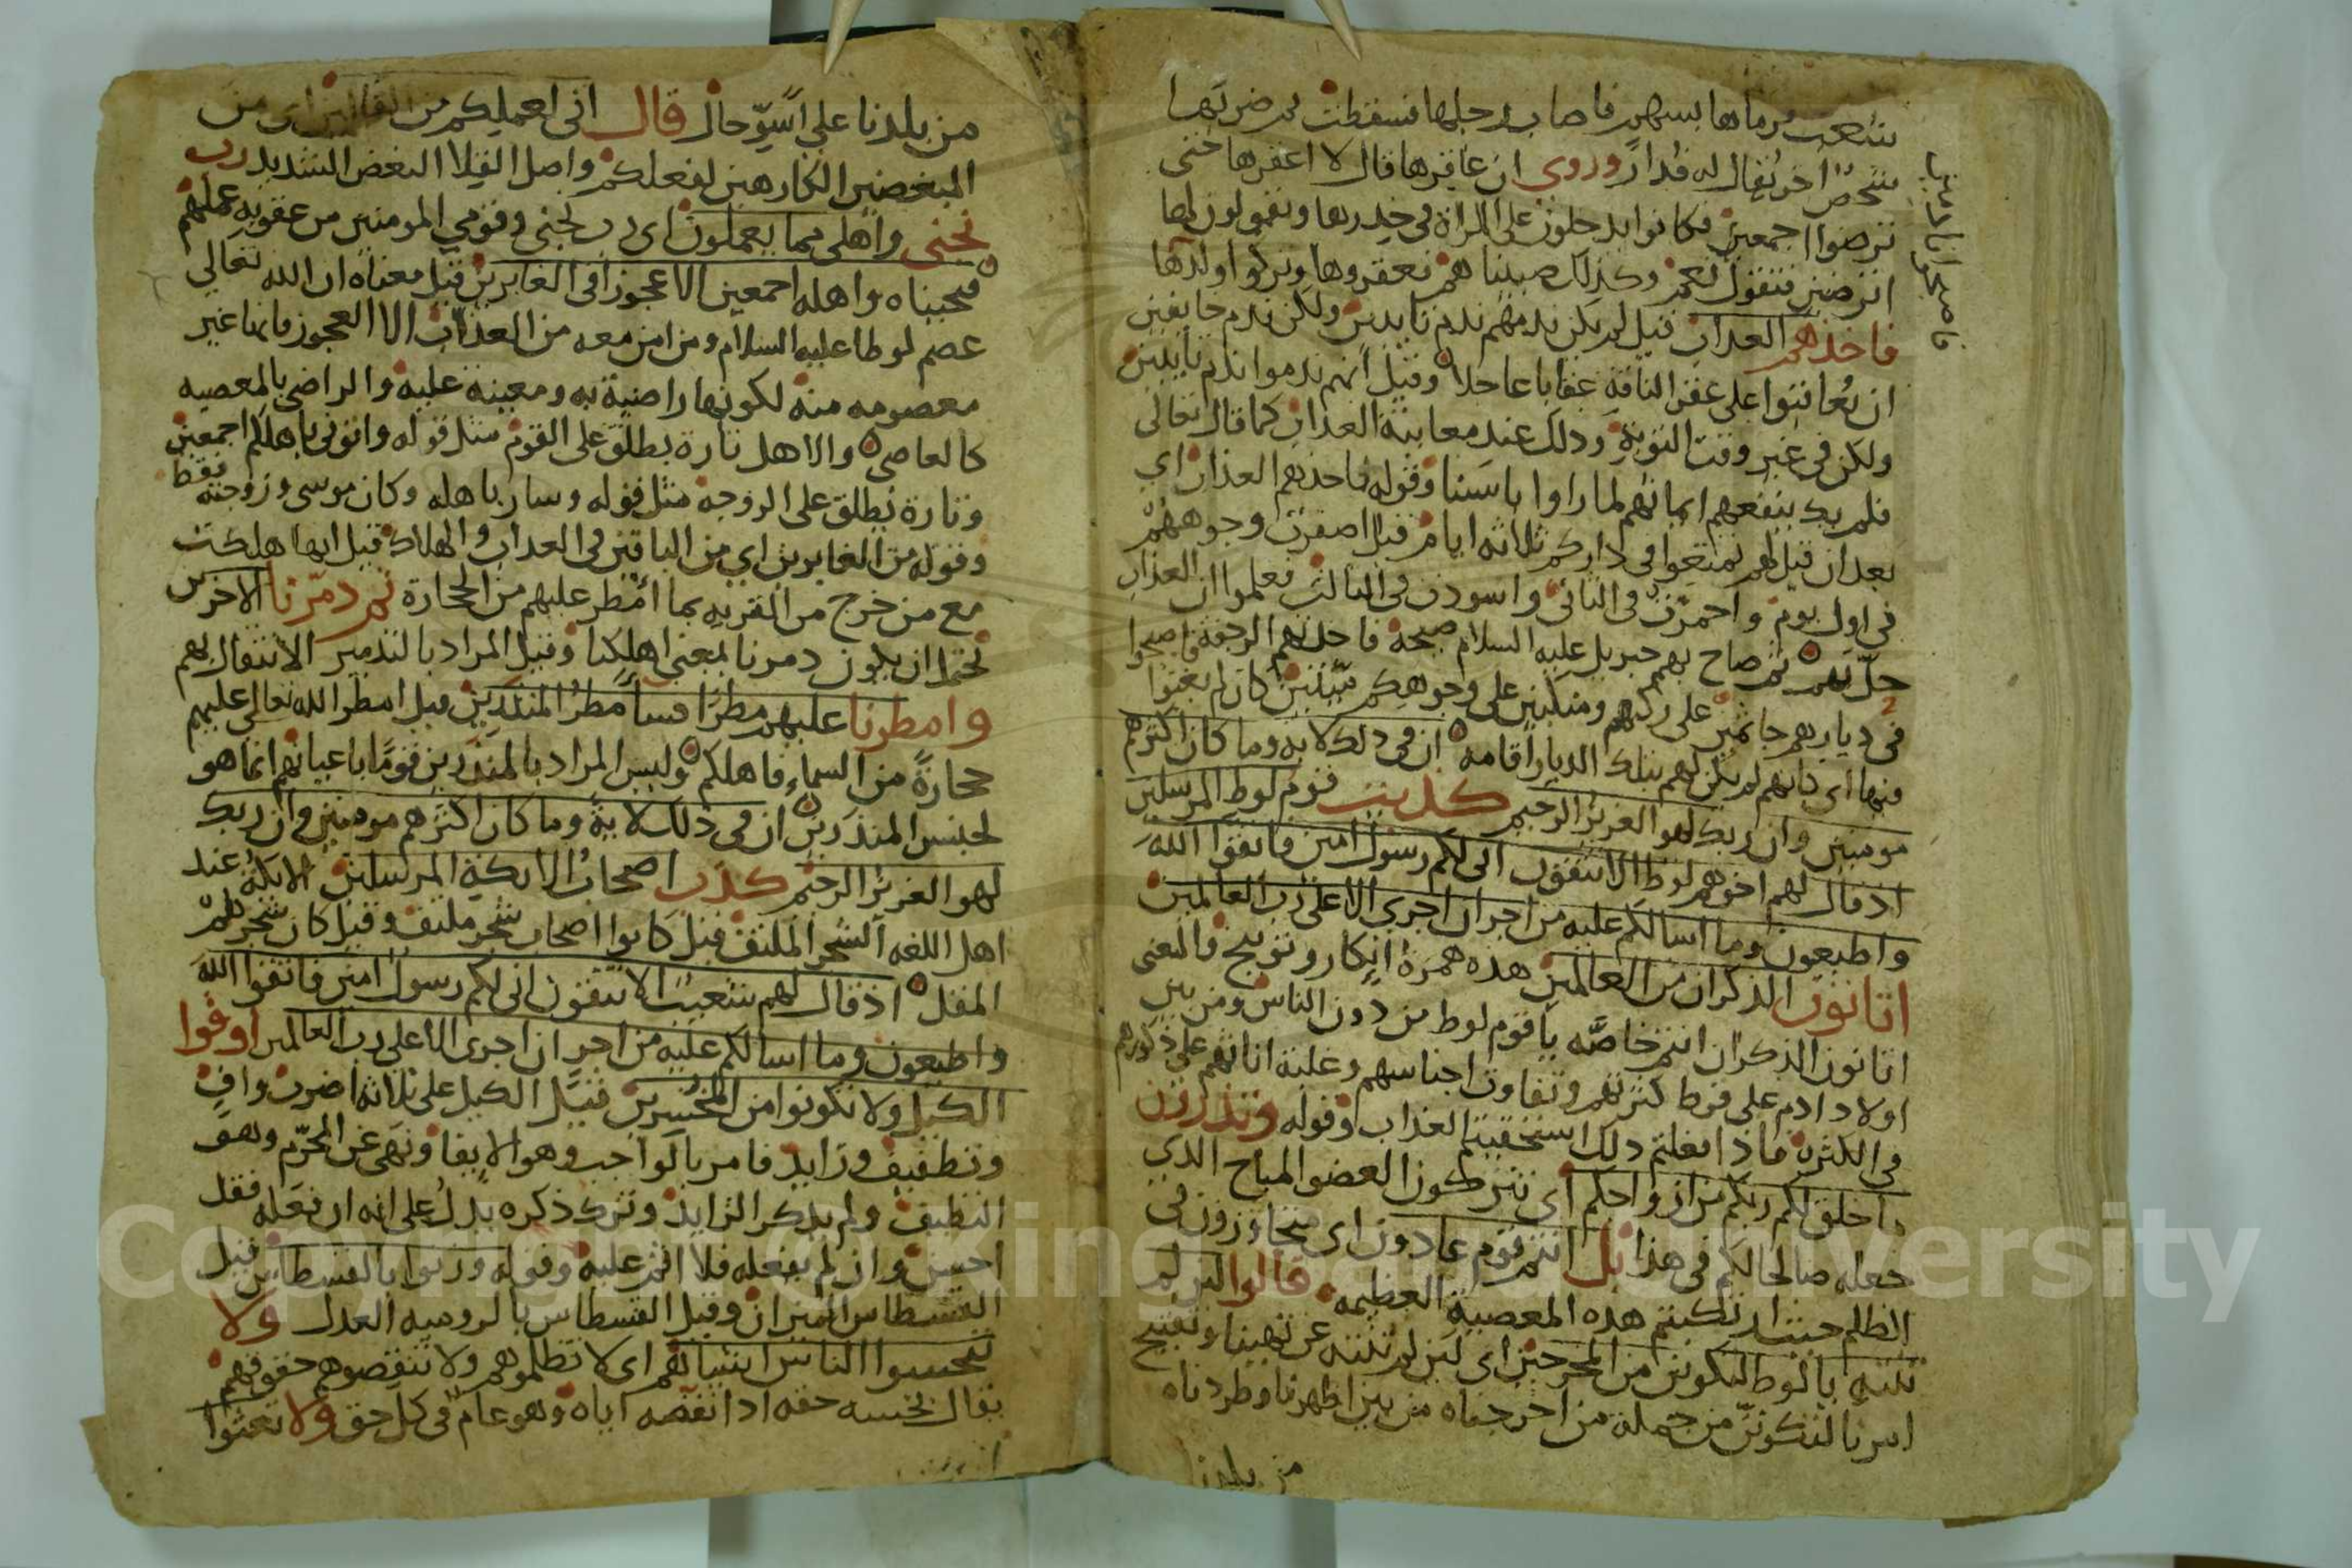 شعب فرماها بسهم فاصاب رجلها فسقطت ثم ضربها
شخص اخر يقال له قدار وروي ان عاقرها قال لا اعقرها حتى
ترضوا اجمعين فكانوا يدخلون على المراة في خدرها ويقولون لها
اترضين فتقول نعم وكذلك صبيانهم فعقروها وتركوا ولدها
فاخذهم العذاب قيل لم يكن ندمهم ندم تايبين ولكن ندم خايفين
ان يعاقبوا على عقر الناقة عقابا عاجلا وقيل انهم ندموا ندم تايبين
ولكن في غير وقت التوبة وذلك عند معاينة العذاب كما قال تعالى
فلم يك ينفعهم ايمانهم لما راوا باسنا وقوله فاخذهم العذاب اي
بعد ان قيل لهم تمتعوا في داركم ثلاثه ايام قيل اصفرت وجوههم
في اول يوم واحمرت في الثاني واسودت في الثالث فعلموا ان العذاب
حل بهم ثم صاح بهم جبريل عليه السلام صيحة فاخذتهم الرجفة فاصبحوا
في ديارهم جاثمين على ركبهم ومنكبين على وجوههم ميتين كان لم يغنوا
فيها اي كانهم لم يكن لهم بتلك الديار اقامه ان في ذلك لاية وما كان اكثرهم
مومنين وان ربك لهو العزيز الرحيم كذبت قوم لوط المرسلين
اذ قال لهم اخوهم لوط الا تتقون اني لكم رسول امين فاتقوا الله
واطيعون وما اسالكم عليه من اجر ان اجري الا على رب العالمين
اتاتون الذكران من العالمين هذه همزة انكار وتوبيخ والمعنى
اتاتون الذكران انتم خاصه ياقوم لوط من دون الناس ومن بين
اولاد ادم على فرط كثرتهم وتفاوت اجناسهم وغلبة اناثهم على ذكورهم
في الكثرة فاذا فعلتم ذلك استحقيتم العذاب وقوله وتذرون
ما خلق لكم ربكم من ازواجكم اي تتركون العضو المباح الذي
جعله صالحا لكم في هذا بل انتم قوم عادون اي متجاوزون في
الظلم حيث ارتكبتم هذه المعصية العظيمه قالوا لين لم
تنته يا لوط لتكونن من المخرجين اي لين لم تنته عن نهينا وتقبيح
امرنا لتكونن من جملة من اخرجناه من بين اظهرنا وطردناه
من بلدنا
من بلدنا على اسوّ حال قال اني لعملكم من القالين اي من
المبغضين الكارهين لفعلكم واصل القلا البغض الشديد رب
نجني واهلي مما يعملون اي رب نجني وقومي المومنين من عقوبة عملهم
فنجيناه واهله اجمعين الا عجوزا في الغابرين قيل معناه ان الله تعالى
عصم لوطا عليه السلام ومن امن معه من العذاب الا العجوز فانها غير
معصومه منه لكونها راضية به ومعينة عليه والراضي بالمعصيه
كالعاصي والاهل تارة يطلق على القوم مثل قوله واتوني باهلكم اجمعين
وتارة يطلق على الزوجة مثل قوله وسار باهله وكان موسى وزوجته فقط
وقوله من الغابرين اي من الباقين في العذاب والهلاك قيل انها هلكت
مع من خرج من القريه بما امطر عليهم من الحجارة ثم دمرنا الاخرين
يحتمل ان يكون دمرنا بمعنى اهلكنا وقيل المراد بالتدمير الانتقال بهم
وامطرنا عليهم مطرا فسا مطر المنذرين قيل امطر الله تعالى عليهم
حجارة من السماء فاهلكم وليس المراد بالمنذرين قوما باعيانهم انما هو
لجنس المنذرين ان في ذلك لاية وما كان اكثرهم مومنين وان ربك
لهو العزيز الرحيم كذب اصحاب الايكة المرسلين الايكة عند
اهل اللغه الشجر الملتف قيل كانوا اصحاب شجر ملتف وقيل كان شجرهم
المقل اذ قال لهم شعيب الا تتقون اني لكم رسول امين فاتقوا الله
واطيعون وما اسالكم عليه من اجر ان اجري الا على رب العالمين اوفوا
الكيل ولا تكونوا من المخسرين قيل الكيل على ثلاثه اضرب واف
وتطفيف وزايد فامر بالواجب وهو الايفا ونهى عن المحرم وهو
التطفيف ولم يذكر الزايد وترك ذكره يدل على انه ان فعله فقد
احسن وان لم يفعله فلا اثم عليه وقوله وزنوا بالقسطاس قيل
القسطاس الميزان وقيل القسطاس بالروميه العدل ولا
تبخسوا الناس اشياهم اي لا تظلموهم ولا تنقصوهم حقوقهم
يقال بخسه حقه اذا نقصه اياه وهو عام في كل حق ولا تعثوا
Copyright © King Saud University